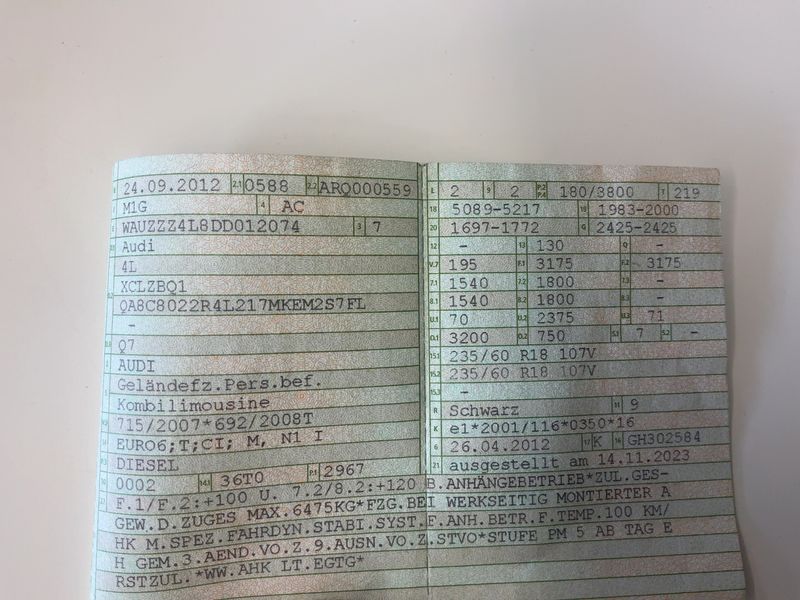 B 24.09.2012 2.1 0588 2.2 ARQ000559
J M1G 4 AC
E WAUZZZ4L8DD012074 3 7
D.1 Audi
4L
D.2 XCLZBQ1
QA8C8022R4L217MKEM2S7FL
-
D.3 Q7
2 AUDI
5 Geländefz.Pers.bef.
Kombilimousine
V.9 715/2007*692/2008T
14 EURO6;T;CI; M, N1 I
P.3 DIESEL
10 0002 14.1 36T0 P.1 2967
L 2 9 2 P.2 P.4 180/3800 T 219
18 5089-5217 19 1983-2000
20 1697-1772 G 2425-2425
12 - 13 130 Q -
V.7 195 F.1 3175 F.2 3175
7.1 1540 7.2 1800 7.3 -
8.1 1540 8.2 1800 8.3 -
U.1 70 U.2 2375 U.3 71
O.1 3200 O.2 750 S.1 7 S.2 -
15.1 235/60 R18 107V
15.2 235/60 R18 107V
15.3 -
R Schwarz 11 9
K e1*2001/116*0350*16
6 26.04.2012 17 K 16 GH302584
21 ausgestellt am 14.11.2023
22 F.1/F.2:+100 U. 7.2/8.2:+120 B.ANHÄNGEBETRIEB*ZUL.GES-
GEW.D.ZUGES MAX.6475KG*FZG.BEI WERKSEITIG MONTIERTER A
HK M.SPEZ.FAHRDYN.STABI.SYST.F.ANH.BETR.F.TEMP.100 KM/
H GEM.3.AEND.VO.Z.9.AUSN.VO.Z.STVO*STUFE PM 5 AB TAG E
RSTZUL.*WW.AHK LT.EGTG*